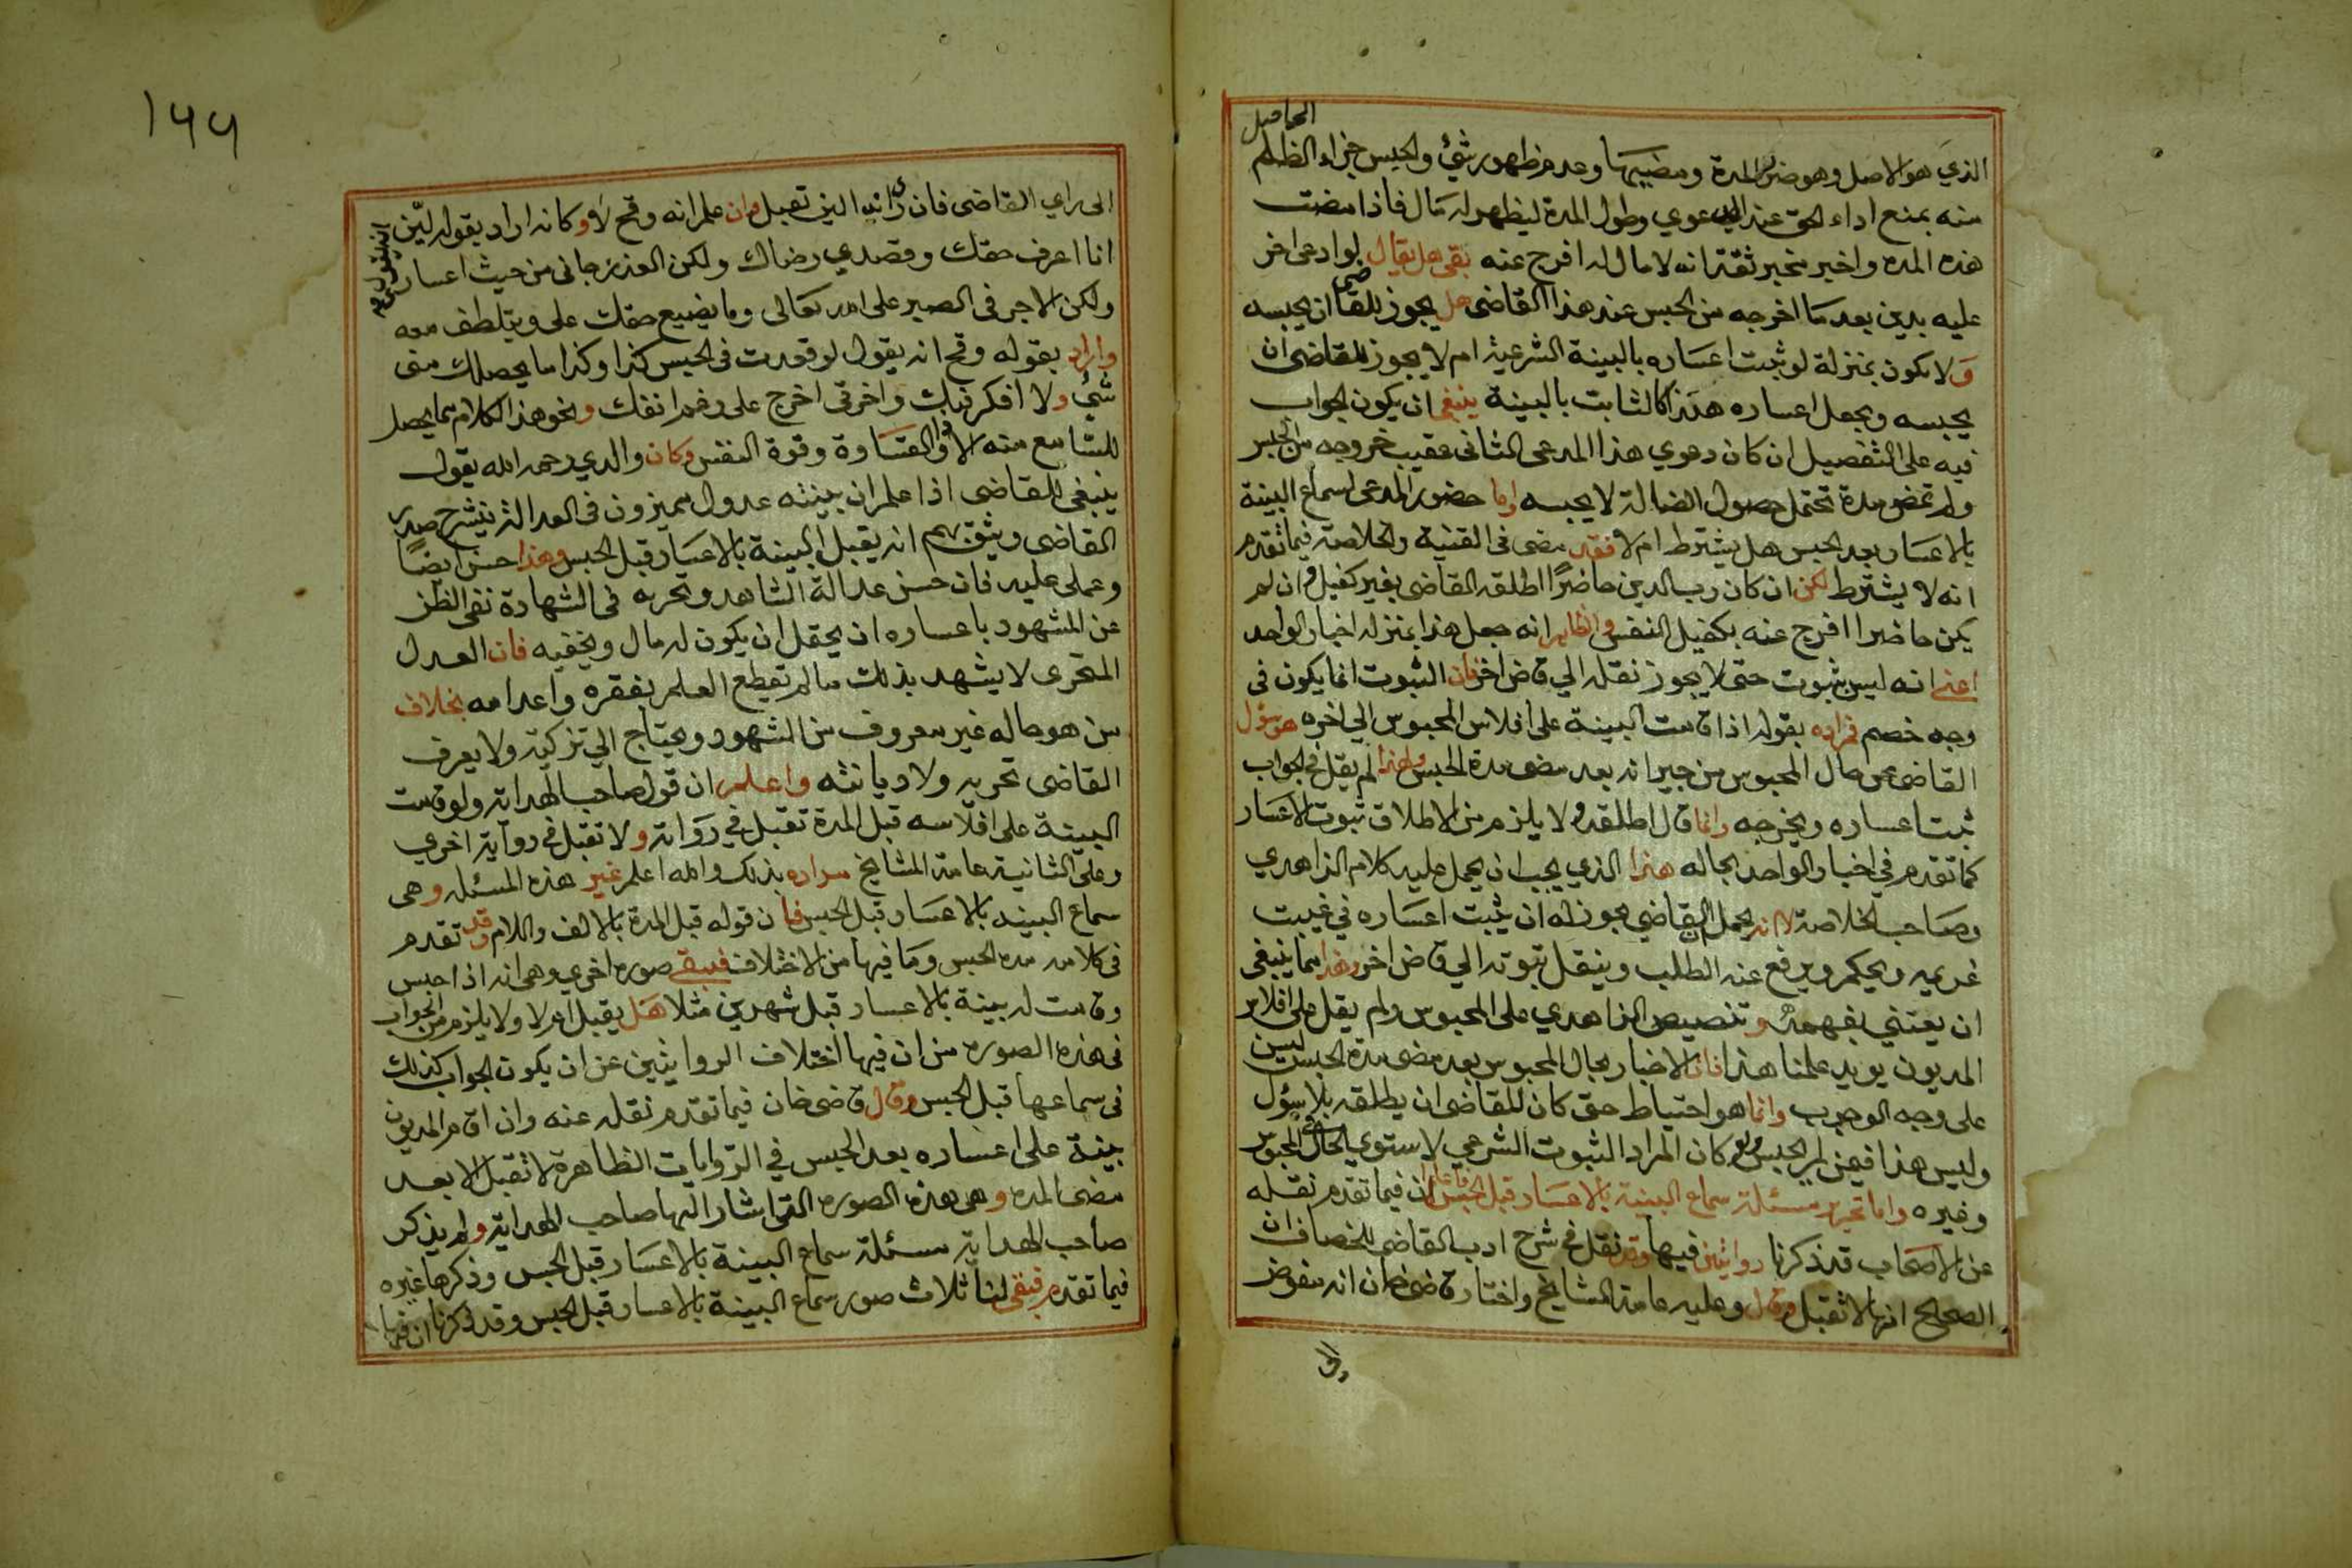 الحاصل
الذي هو الاصل وهو ضرب المدة ومضيها وعدم ظهور شئ والحبس جزاء الظلم
منه بمنع اداء الحق عند الدعوي وطول المدة ليظهر له مال فاذا مضت
هذه المدة واخبر مخبر ثقة انه لا مال له افرج عنه بقي هل يقال لو ادعى اخر
عليه بدين بعد ما اخرجه من الحبس عند هذا القاضي هل يجوز للقاضي ان يحبسه
ولا يكون بمنزلة لو ثبت اعساره بالبينة الشرعية ام لا يجوز للقاضي ان
يحبسه ويجعل اعساره هذا كالثابت بالبينة ينبغي ان يكون الجواب
فيه على التفصيل ان كان دعوي هذا المدعى الثاني عقيب خروجه من الحبس
ولم تمض مدة تحتمل حصول المال له لا يحبسه واما حضور المدعى لسماع البينة
بالاعسار بعد الحبس هل يشترط ام لا فقد مضى في القنية والخلاصة فيما تقدم
انه لا يشترط لكن ان كان رب الدين حاضرًا اطلقه القاضي بغير كفيل وان لم
يكن حاضرا افرج عنه بكفيل النفس والظاهر انه جعل هذا بمنزلة اخبار الواحد
اعني انه ليس بثبوت حتى لا يجوز نقله الي قاض اخر فان الثبوت انما يكون في
وجه خصم فمراده بقوله اذا قامت البينة على افلاس المحبوس الي اخره هو سؤال
القاضي عن حال المحبوس من جيرانه بعد مضى مدة الحبس ولهذا لم يقل في الجواب
ثبت اعساره ويخرجه وانما قال اطلقه ولا يلزم من الاطلاق ثبوت الاعسار
كما تقدم في اخبار الواحد بحاله هذا الذي يجب ان يحمل عليه كلام الزاهدي
وصاحب الخلاصة لا انه يحمل ان القاضي يجوز له ان يثبت اعساره في غيبت
غريمه ويحكم ويرفع عنه الطلب وينقل ثبوته الي قاض اخر وهذا مما ينبغي
ان يعتني بفهمه وتنصيص الزاهدي على المحبوس ولم يقل على افلاس
المديون يويد علمنا هذا فان الاخبار بحال المحبوس بعد مضى مدة الحبس ليس
على وجه الوجوب وانما هو احتياط حتى كان للقاضي ان يطلقه بلا سؤال
وليس هذا فيمن لم يحبس ولو كان المراد الثبوت الشرعي لاستوي الحال في المحبوس
وغيره واما تحرير مسئلة سماع البينة بالاعسار قبل الحبس فاعلم ان فيما تقدم نقله
عن الاصحاب قد ذكرنا روايتين فيها وقد نقل في شرح ادب القاضي للخصاف ان
الصحيح انها لا تقبل وقال وعليه عامة المشايخ واختار قاضي خان انه مفوض
١٦٦
الى راي القاضي فان راي انه لين تقبل وان علم انه وقح لا وكانه اراد بقوله لين
ان يقول له
انا اعرف حقك وقصدي رضاك ولكن العذر جاني من حيث اعسار
ولكن الاجر في الصبر على الله تعالى وما يضيع حقك علي ويتلطف معه
واراد بقوله وقح انه يقول لو قعدت في الحبس كذا وكذا ما يحصل لك مني
شئ ولا افكر فيك واخرتي اخرج على رغم انفك ونحو هذا الكلام مما يحصل
للسامع منه الاذى والقساوة وقوة النفس وكان والدي رحمه الله يقول
ينبغي للقاضي اذا علم ان بينته عدول مميزون في العدالة ينشرح صدر
القاضي ويثق بهم انه يقبل البينة بالاعسار قبل الحبس وهذا حسن ايضًا
وعملي عليه فان حسن عدالة الشاهد وتحريه في الشهادة نفى الظن
عن المشهود باعساره ان يحتمل ان يكون له مال ويخفيه فان العدل
المتحرى لا يشهد بذلك ما لم تقطع العلم بفقره واعدامه بخلاف
من هو حاله غير معروف من الشهود ويحتاج الي تزكية ولا يعرف
القاضي تحريه ولا ديانته واعلم ان قول صاحب الهداية ولو قامت
البينة على افلاسه قبل المدة تقبل في رواية ولا تقبل في رواية اخري
وعلى الثانية عامة المشايخ مراده بذلك والله اعلم غير هذه المسئلة وهى
سماع البينه بالاعسار قبل الحبس فان قوله قبل المدة بالالف واللام وقد تقدم
في كلامه مدة الحبس وما فيها من الاختلاف فبقي صوره اخري وهي انه اذا حبس
وقامت له بينة بالاعسار قبل شهرين مثلا هل يقبل ام لا ولا يلزم من الجواب
في هذه الصوره من ان فيها اختلاف الروايتين عن ان يكون الجواب كذلك
في سماعها قبل الحبس وقال قاضي خان فيما تقدم نقله عنه وان اقام المديون
بينة على اعساره بعد الحبس في الروايات الظاهرة لا تقبل الا بعد
مضى المده وهى هذه الصوره التي اشار اليها صاحب الهداية ولم يذكر
صاحب الهداية مسئلة سماع البينة بالاعسار قبل الحبس وذكرها غيره
فيما تقدم فبقي لنا ثلاث صور سماع البينة بالاعسار قبل الحبس وقد ذكرنا ان فيها